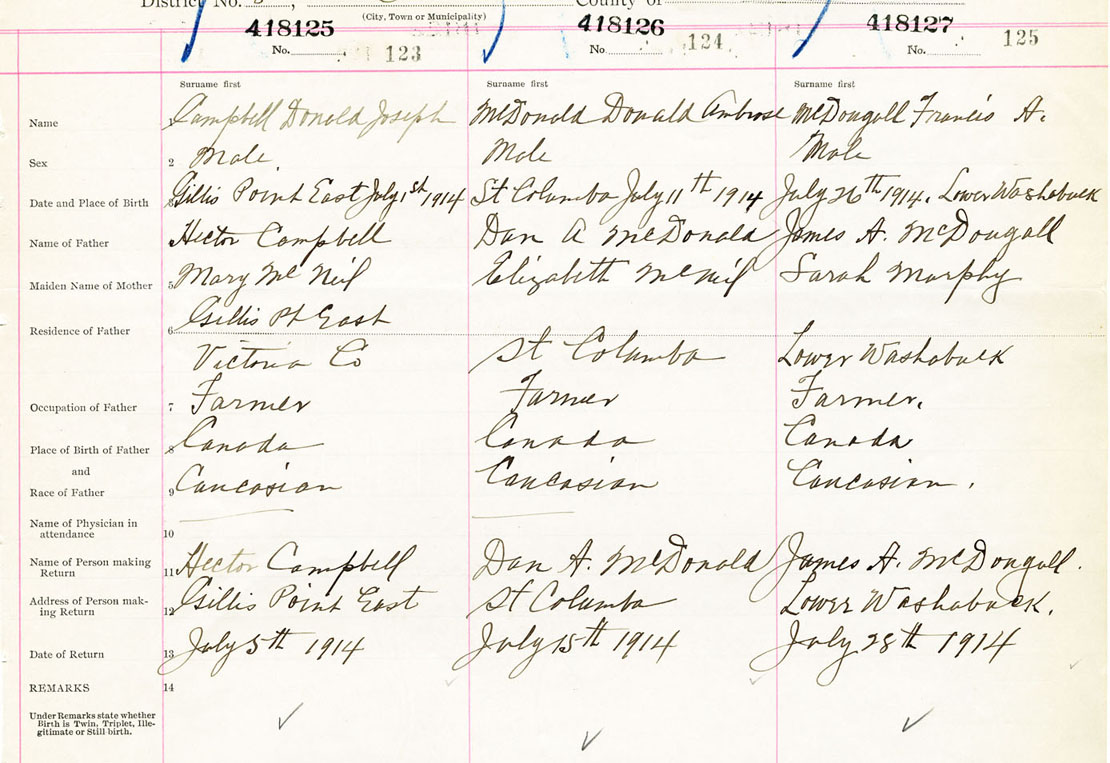 District No.
(City, Town or Municipality)
County of
418125 418126 418127
No. 123 No 124 No. 125
Surname first Surname first Surname first
Name 1 Campbell Donald Joseph McDonald Donald Ambrose McDougall Francis A.
Sex 2 Male Male Male
Date and Place of Birth 3 Gillis Point East July 1st 1914 St Columba July 11th 1914 July 26th 1914. Lower Washabuck
Name of Father Hector Campbell Dan A McDonald James A. McDougall
Maiden Name of Mother 5 Mary McNeil Elizabeth McNeil Sarah Murphy
Gillis Pt East
Residence of Father 6
Victoria Co St Columba Lower Washabuck
Occupation of Father 7 Farmer Farmer Farmer.
Place of Birth of Father 8 Canada Canada Canada
and
Race of Father 9 Caucasian Caucasian Caucasian.
Name of Physician in
attendance 10
Name of Person making
Return 11 Hector Campbell Dan A. McDonald James A. McDougall.
Address of Person mak-
ing Return 12 Gillis Point East St Columba Lower Washabuck.
Date of Return 13 July 5th 1914 July 15th 1914 July 28th 1914
REMARKS 14
Under Remarks state whether
Birth is Twin, Triplet, Ille-
gitimate or Still birth.